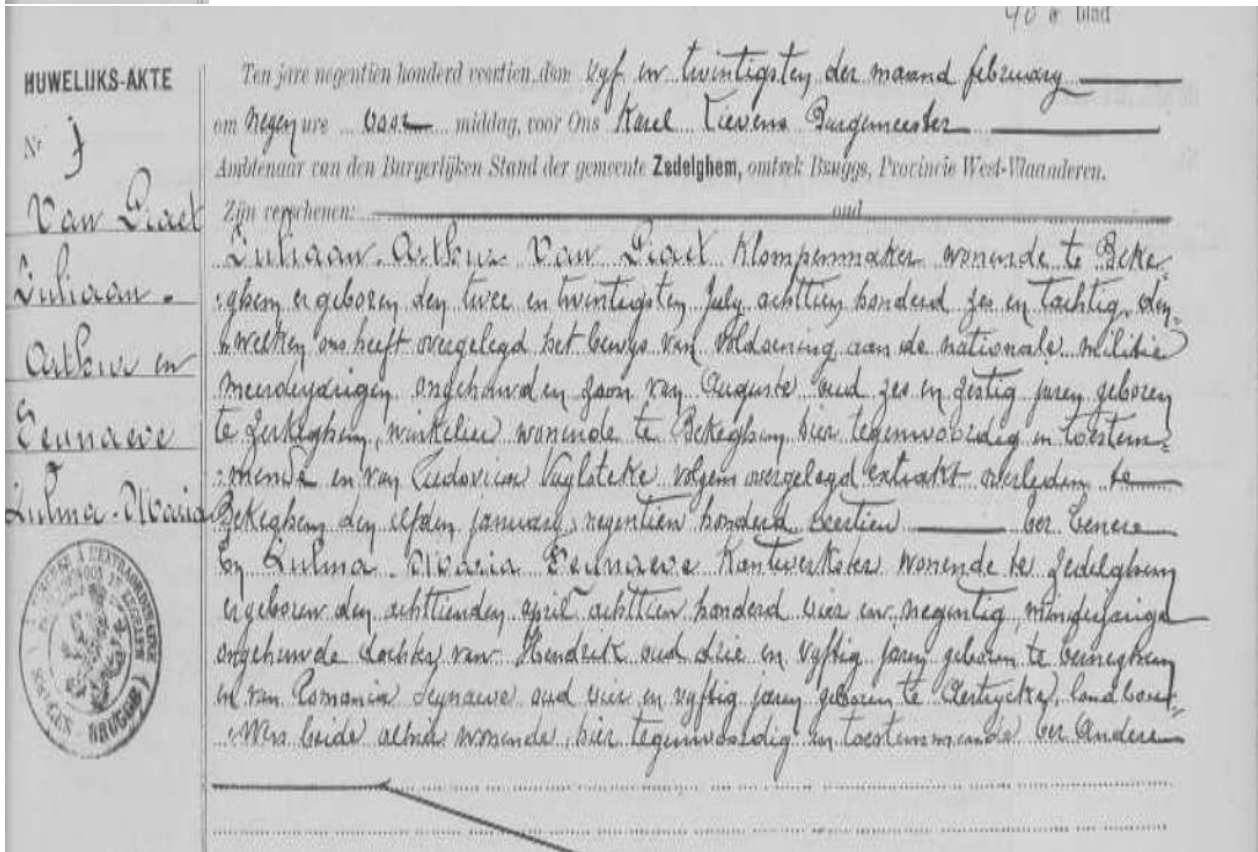 40e blad
HUWELIJKS-AKTE
Nr 7
Van Liaet
Juliaan-
Arthur en
Eeunaeve
Zulma-Maria
Ten jare negentien honderd veertien, den vyf en twintigsten der maand february
om negen ure voor middag, voor Ons Karel Lievens Burgemeester
Ambtenaar van den Burgerlijken Stand der gemeente Zedelghem, omtrek Brugge, Provincie West-Vlaanderen.
Zijn verschenen: oud
Juliaan-Arthur Van Liaet Klompenmaker wonende te Beke-
:ghem er geboren den twee en twintigsten July achttien honderd zes en tachtig, den
welken ons heeft overgelegd het bewys van voldoening aan de nationale militie
meerderjarigen ongehuwden zoon van Auguste oud zes en zestig jaren geboren
te Zerkeghem, winkelier wonende te Bekeghem hier tegenwoordig en toestem-
:mende en van Ludovica Vuylsteke volgens overgelegd extrakt overleden te
Bekeghem den elfden january negentien honderd veertien ter eenere
En Zulma-Maria Eeunaeve Kantwerkster wonende te Zedelghem
er geboren den achttienden april achttien honderd vier en negentig, minderjarige
ongehuwde dochter van Hendrik oud drie en vyftig jaren geboren te Eerneghem
en van Romania Seynaeve oud vier en vyftig jaren geboren te Aertrycke, landbou-
:wers beide alhier wonende, hier tegenwoordig en toestemmende ter andere
BRUGGE